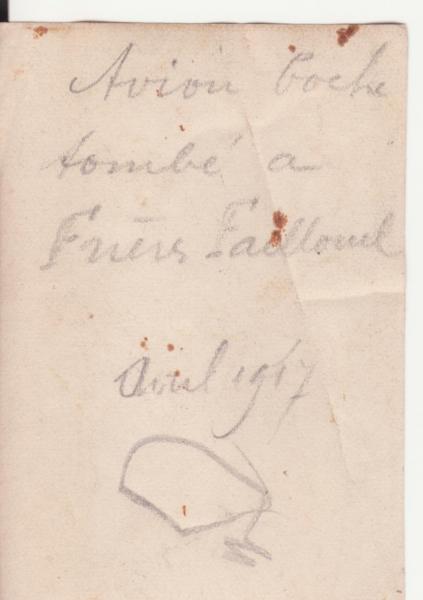 Avion boche
tombé a
Frières Faillouel
Avril 1917